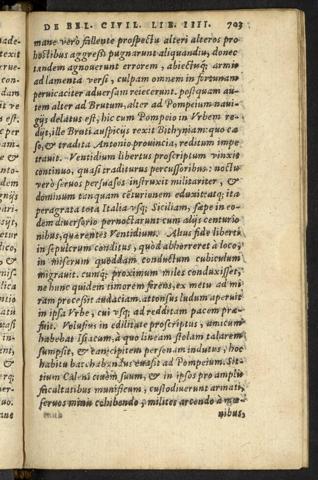 DE BEL. CIVIL. LIB. IIII. 703
mane verò fallente prospectu alteri alteros pro
hostibus aggressi pugnarunt aliquandiu, donec
tandem agnouerunt errorem, abiectisq; armis
ad lamenta versi, culpam omnem in fortunam
peruicaciter aduersam reiecerunt. postquam au-
tem alter ad Brutum, alter ad Pompeium naui-
gijs delatus est, hic cum Pompeio in Vrbem re-
dijt, ille Bruti auspicijs rexit Bithyniam: quo cæ
so, & tradita Antonio prouincia, reditum impe
trauit. Ventidium libertus proscriptum vinxit
continuo, quasi traditurus percussoribus: noctu
verò seruos persuasos instruxit militariter, &
dominum tanquam cēturionem eduxit eatq; ita
peragrata tota Italia vsq; Siciliam, sæpe in eo-
dem diuersorio pernoctarunt cum alijs centurio
nibus, quærentes Ventidium. Alius fide liberti
in sepulcrum conditus, quod abhorreret à loco,
in miserum quoddam conductum cubiculum
migrauit. cunq; proximum miles conduxisset,
ne hunc quidem timorem ferens, ex metu ad mi
ram processit audaciam. attonsus ludum aperuit
in ipsa Vrbe, cui vsq; ad redditam pacem præ-
fuit. Volusius in edilitate proscriptus, amicum
habebat Isiacum, à quo lineam stolam talarem
sumpsit, & canicipitem personam indutus, hoc
habitu bacchabundus euasit ad Pompeium. Sit-
tium Caleni ciuem suum, & in ipsos pro amplis
facultatibus munificum, custodiuerunt armati,
seruos minis cohibendo, milites arcendo à mœ-
nibus,